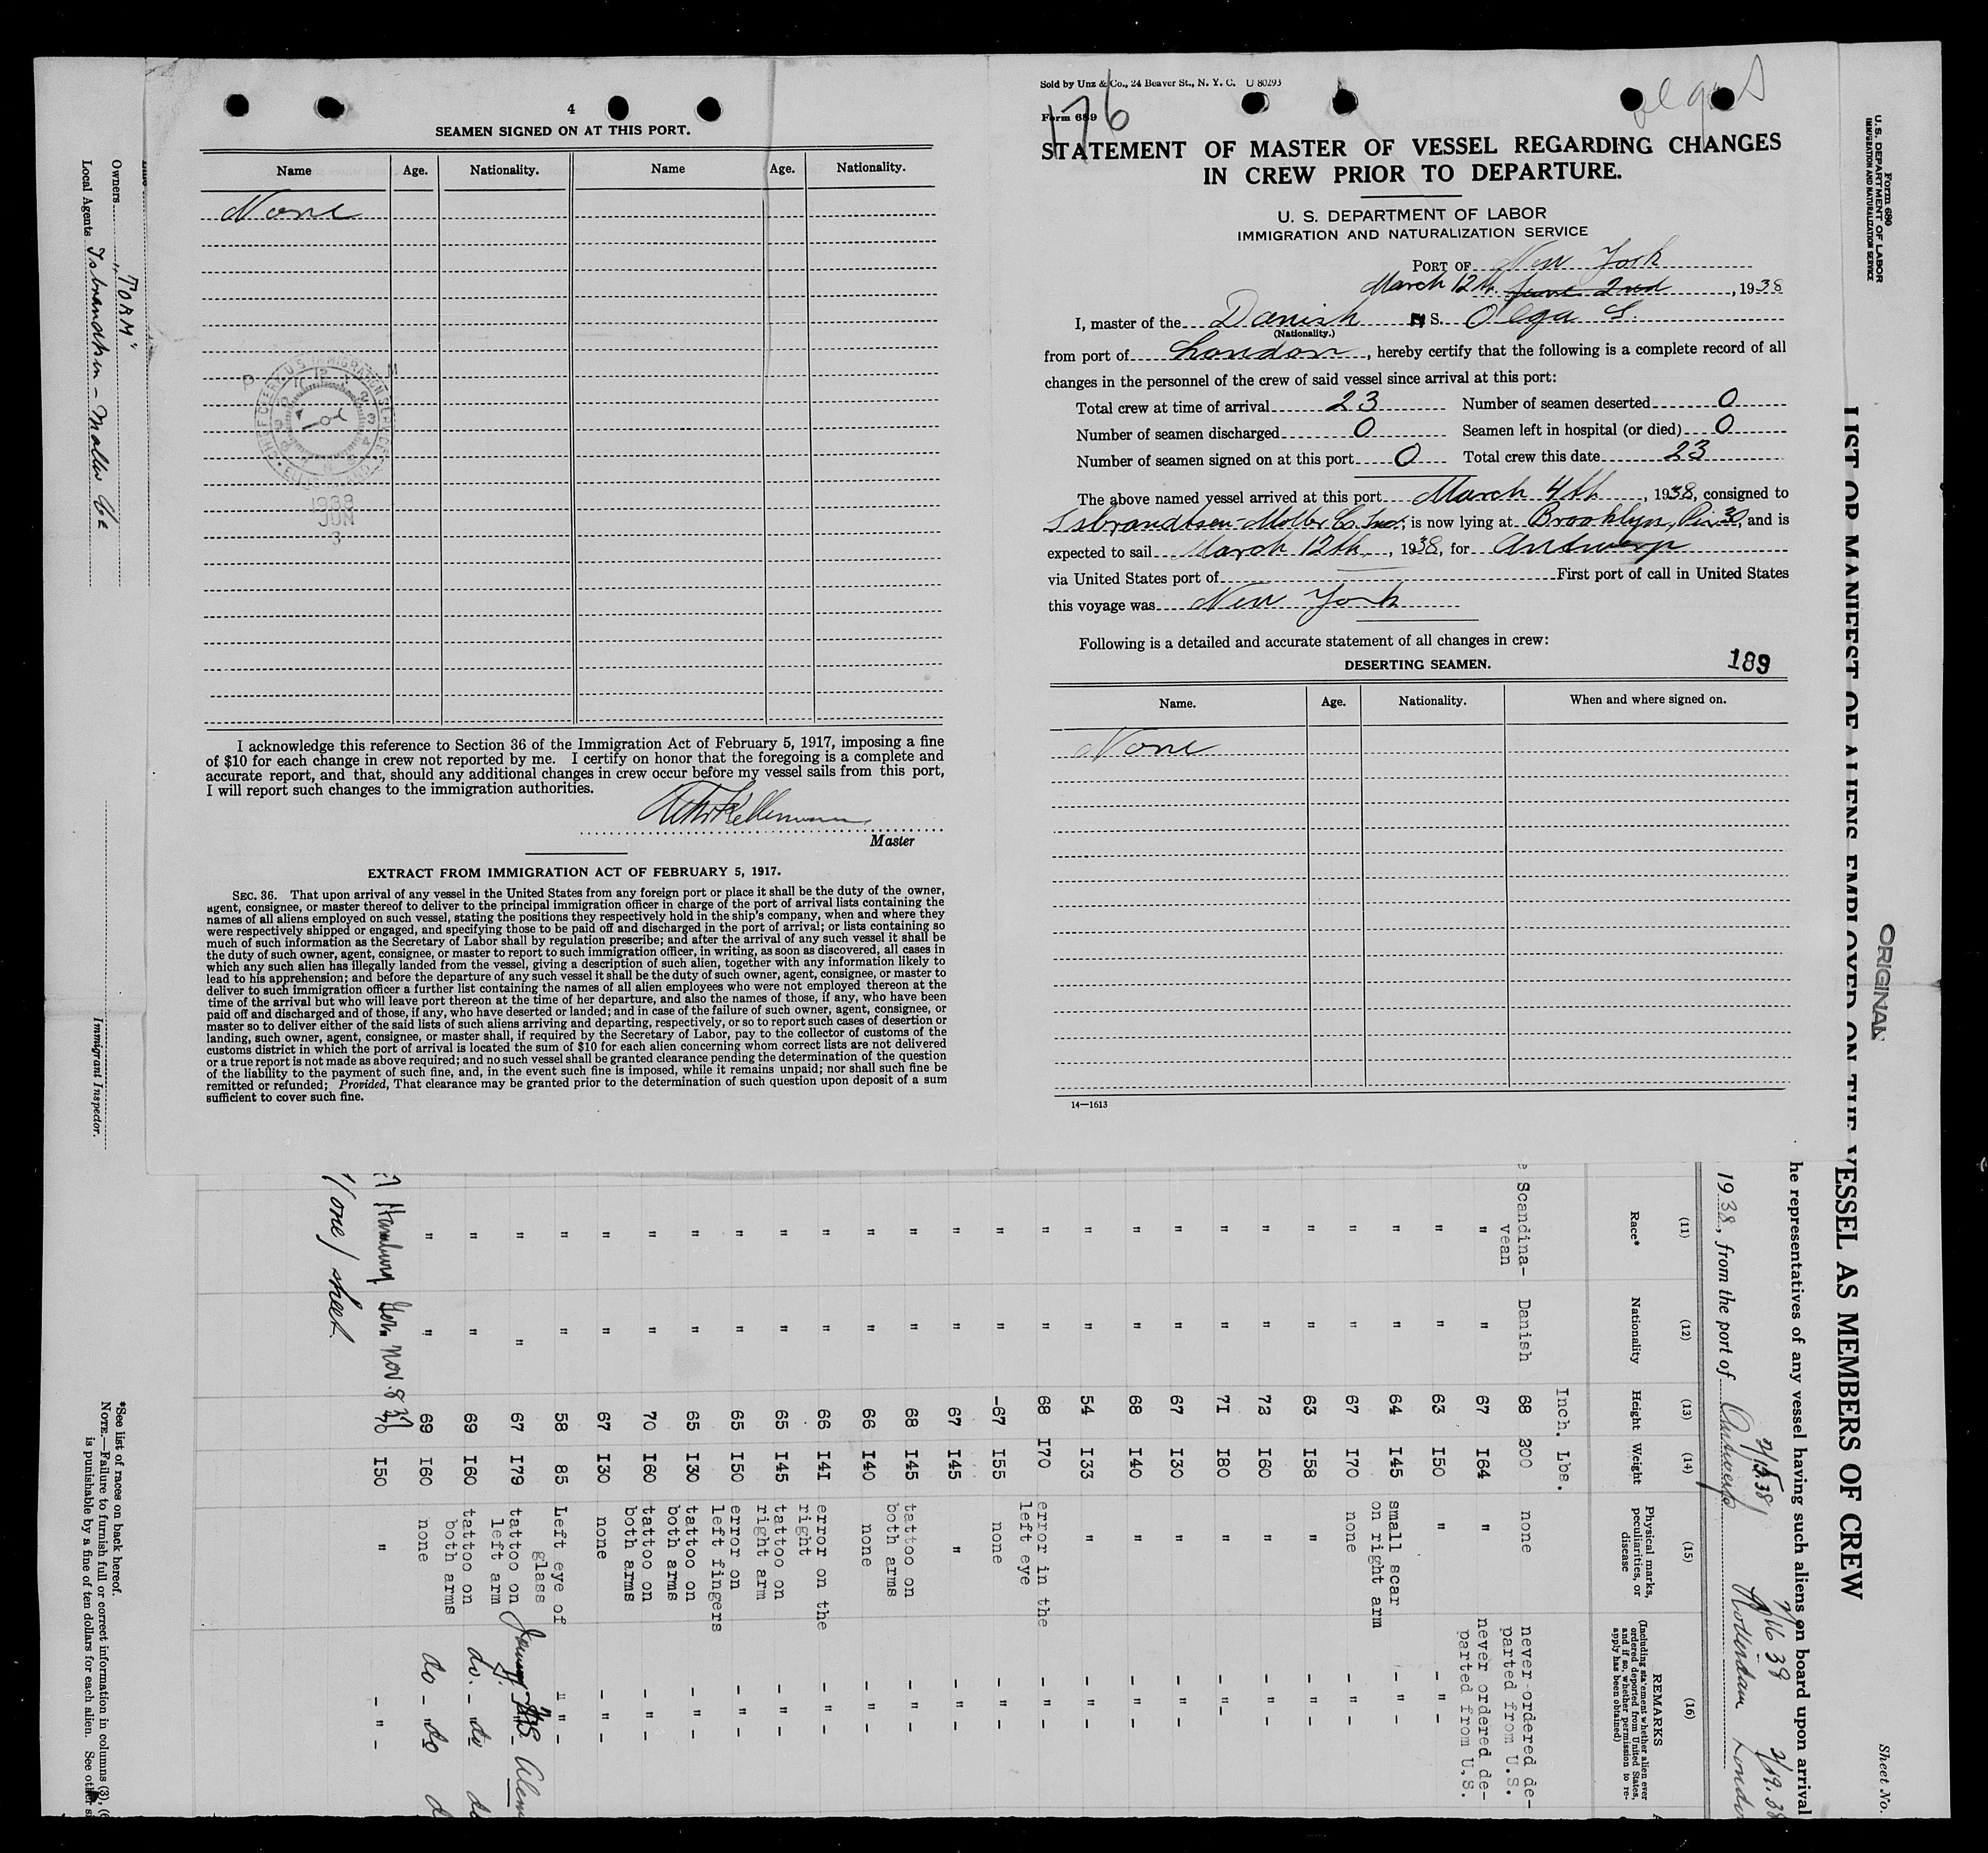 4
SEAMEN SIGNED ON AT THIS PORT.
Name Age. Nationality. Name Age. Nationality.
None
CHIEF CLERK U.S. IMMIGRATION SERVICE
ELLIS ISLAND
1938
JUN
3
I acknowledge this reference to Section 36 of the Immigration Act of February 5, 1917, imposing a fine
of $10 for each change in crew not reported by me. I certify on honor that the foregoing is a complete and
accurate report, and that, should any additional changes in crew occur before my vessel sails from this port,
I will report such changes to the immigration authorities.
Master
EXTRACT FROM IMMIGRATION ACT OF FEBRUARY 5, 1917.
SEC. 36. That upon arrival of any vessel in the United States from any foreign port or place it shall be the duty of the owner,
agent, consignee, or master thereof to deliver to the principal immigration officer in charge of the port of arrival lists containing the
names of all aliens employed on such vessel, stating the positions they respectively hold in the ship's company, when and where they
were respectively shipped or engaged, and specifying those to be paid off and discharged in the port of arrival; or lists containing so
much of such information as the Secretary of Labor shall by regulation prescribe; and after the arrival of any such vessel it shall be
the duty of such owner, agent, consignee, or master to report to such immigration officer, in writing, as soon as discovered, all cases in
which any such alien has illegally landed from the vessel, giving a description of such alien, together with any information likely to
lead to his apprehension; and before the departure of any such vessel it shall be the duty of such owner, agent, consignee, or master to
deliver to such immigration officer a further list containing the names of all alien employees who were not employed thereon at the
time of the arrival but who will leave port thereon at the time of her departure, and also the names of those, if any, who have been
paid off and discharged and of those, if any, who have deserted or landed; and in case of the failure of such owner, agent, consignee, or
master so to deliver either of the said lists of such aliens arriving and departing, respectively, or so to report such cases of desertion or
landing, such owner, agent, consignee, or master shall, if required by the Secretary of Labor, pay to the collector of customs of the
customs district in which the port of arrival is located the sum of $10 for each alien concerning whom correct lists are not delivered
or a true report is not made as above required; and no such vessel shall be granted clearance pending the determination of the question
of the liability to the payment of such fine, and, in the event such fine is imposed, while it remains unpaid; nor shall such fine be
remitted or refunded; Provided, That clearance may be granted prior to the determination of such question upon deposit of a sum
sufficient to cover such fine.
Sold by Unz & Co., 24 Beaver St., N. Y. C. U 80293
176
Form 689
STATEMENT OF MASTER OF VESSEL REGARDING CHANGES
IN CREW PRIOR TO DEPARTURE.
U. S. DEPARTMENT OF LABOR
IMMIGRATION AND NATURALIZATION SERVICE
PORT OF New York
March 12th June 2nd, 1938
I, master of the Danish M S. Olga S.
(Nationality.)
from port of London, hereby certify that the following is a complete record of all
changes in the personnel of the crew of said vessel since arrival at this port:
Total crew at time of arrival 23 Number of seamen deserted 0
Number of seamen discharged 0 Seamen left in hospital (or died) 0
Number of seamen signed on at this port 0 Total crew this date 23
The above named vessel arrived at this port March 4th, 1938, consigned to
Isbrandtsen-Moller Co. Inc., is now lying at Brooklyn, Pier 30, and is
expected to sail March 12th, 1938, for Antwerp
via United States port of First port of call in United States
this voyage was New York
Following is a detailed and accurate statement of all changes in crew:
189
DESERTING SEAMEN.
Name. Age. Nationality. When and where signed on.
None
14—1613
Form 680
U. S. DEPARTMENT OF LABOR
IMMIGRATION AND NATURALIZATION SERVICE
ORIGINAL
Sheet No.
LIST OR MANIFEST OF ALIENS EMPLOYED ON THE VESSEL AS MEMBERS OF CREW
he representatives of any vessel having such aliens on board upon arrival
2/15.38 2/16 38 2/19.38
1938, from the port of Antwerp Rotterdam London
(11) (12) (13) (14) (15) (16)
Race* Nationality Height Weight Physical marks, peculiarities, or disease REMARKS
(Including statement whether alien ever ordered deported from United States, and if so, whether permission to reapply has been obtained)
Inch. Lbs.
Scandina- Danish 68 200 none never ordered de-
vean parted from U.S.
" " 67 I64 " never ordered de-
parted from U.S.
" " 63 I50 " - " -
" " 64 I45 small scar - " -
on right arm
" " 67 I70 none - " -
" " 63 I58 " - " -
" " 72 I60 " - " -
" " 7I I80 " - " -
" " 67 I30 " - " -
" " 68 I40 " - " -
" " 54 I33 " - " -
" " 68 I70 error in the - " -
left eye
" " -67 I55 none - " -
" " 67 I45 " - " -
" " 68 I45 tattoo on - " -
both arms
" " 66 I40 none - " -
" " 66 I4I error on the - " -
right
" " 65 I45 tattoo on - " -
right arm
" " 65 I50 error on - " -
left fingers
" " 65 I30 tattoo on - " -
both arms
" " 70 I60 tattoo on - " -
both arms
" " 67 I30 none - " -
" " 58 85 Left eye of - " -
glass
" " 67 I79 tattoo on
left arm
" " 69 I60 tattoo on do. - do
both arms
" " 69 I60 none do - do
Hamburg Ger. Nov. 8 37 70 I50 " - " -
1/one/ sheet.
Owners "TORM"
Local Agents Isbrandtsen - Moller Co
Immigrant Inspector.
*See list of races on back hereof.
NOTE.—Failure to furnish full or correct information in columns (3), (6
is punishable by a fine of ten dollars for each alien. See other si